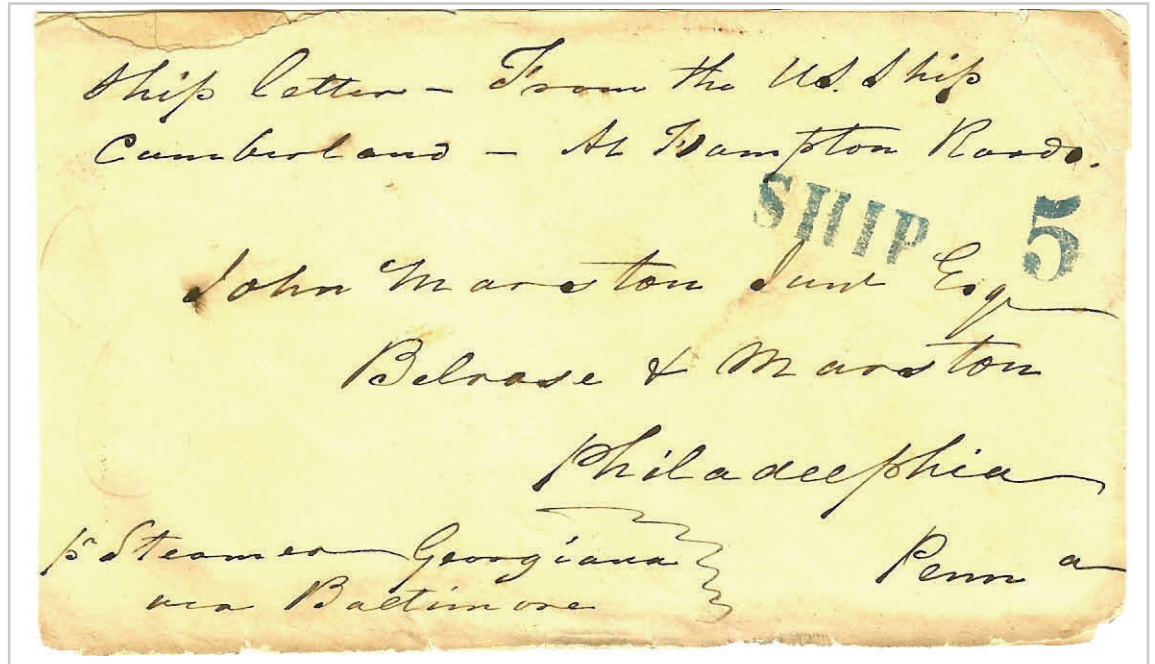 Ship letter - From the U.S. Ship
Cumberland - At Hampton Roads.
SHIP 5
John Marston Junr Esq
Belrose & Marston
Philadelphia
Penna
pr Steamer Georgiana
via Baltimore